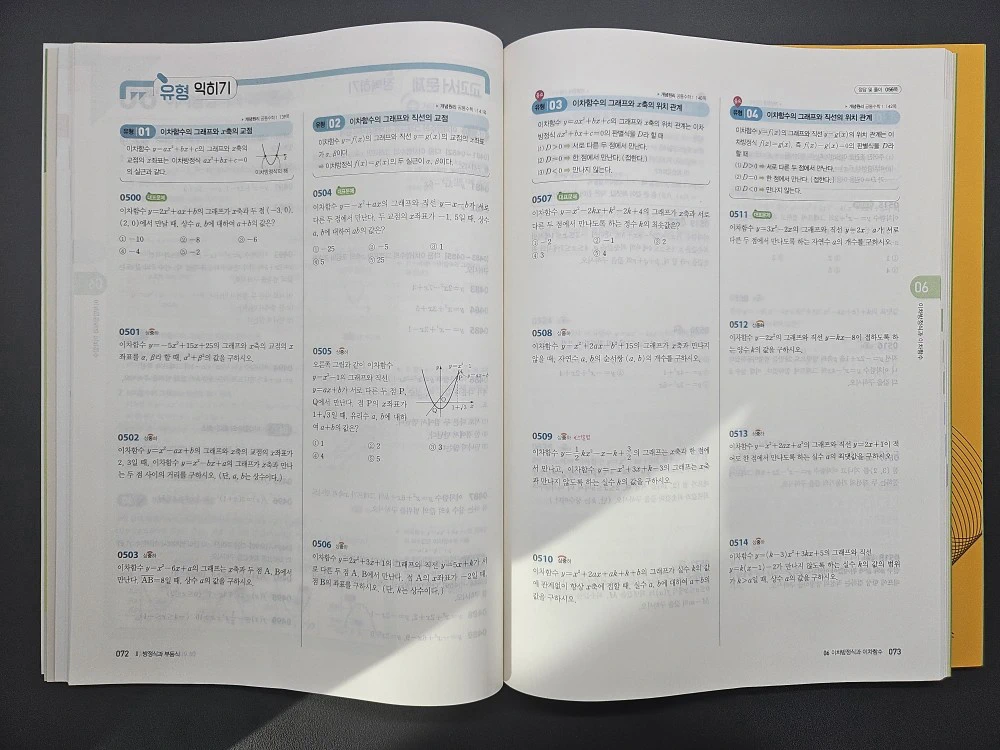 유형 익히기
개념원리 공통수학 1 139쪽
유형 01 이차함수의 그래프와 x축의 교점
이차함수 y=ax²+bx+c의 그래프와 x축의
교점의 x좌표는 이차방정식 ax²+bx+c=0
의 실근과 같다.
이차방정식의 해
0500 대표문제
이차함수 y=2x²+ax+b의 그래프가 x축과 두 점 (-3, 0),
(2, 0)에서 만날 때, 상수 a, b에 대하여 a+b의 값은?
① -10 ② -8 ③ -6
④ -4 ⑤ -2
0501 상중하
이차함수 y=-5x²+15x+25의 그래프와 x축의 교점의 x
좌표를 α, β라 할 때, α²+β²의 값을 구하시오.
0502 상중하
이차함수 y=x²-ax+b의 그래프와 x축의 교점의 x좌표가
2, 3일 때, 이차함수 y=x²-bx+a의 그래프가 x축과 만나
는 두 점 사이의 거리를 구하시오. (단, a, b는 상수이다.)
0503 상중하
이차함수 y=x²-6x+a의 그래프는 x축과 두 점 A, B에서
만난다. AB=8일 때, 상수 a의 값을 구하시오.
개념원리 공통수학 1 141쪽
유형 02 이차함수의 그래프와 직선의 교점
이차함수 y=f(x)의 그래프와 직선 y=g(x)의 교점의 x좌표
가 α, β이다.
⇨ 이차방정식 f(x)=g(x)의 두 실근이 α, β이다.
0504 대표문제
이차함수 y=-x²+ax의 그래프와 직선 y=x-b가 서로
다른 두 점에서 만난다. 두 교점의 x좌표가 -1, 5일 때, 상수
a, b에 대하여 ab의 값은?
① -25 ② -5 ③ 1
④ 5 ⑤ 25
0505 상중하
오른쪽 그림과 같이 이차함수
y=x²-1의 그래프와 직선
y=ax+b가 서로 다른 두 점 P,
Q에서 만난다. 점 P의 x좌표가
1+√3일 때, 유리수 a, b에 대하
여 a+b의 값은?
① 1 ② 2 ③ 3
④ 4 ⑤ 5
0506 상중하
이차함수 y=2x²+3x+1의 그래프와 직선 y=5x+k가 서
로 다른 두 점 A, B에서 만난다. 점 A의 x좌표가 -2일 때,
점 B의 좌표를 구하시오. (단, k는 상수이다.)
072 Ⅱ 방정식과 부등식
개념원리 공통수학 1 140쪽
중요
유형 03 이차함수의 그래프와 x축의 위치 관계
이차함수 y=ax²+bx+c의 그래프와 x축의 위치 관계는 이차
방정식 ax²+bx+c=0의 판별식을 D라 할 때
⑴ D>0 ⇨ 서로 다른 두 점에서 만난다.
⑵ D=0 ⇨ 한 점에서 만난다. (접한다.)
⑶ D<0 ⇨ 만나지 않는다.
0507 대표문제
이차함수 y=x²-2kx+k²-2k+4의 그래프가 x축과 서로
다른 두 점에서 만나도록 하는 정수 k의 최솟값은?
① -2 ② -1 ③ 2
④ 3 ⑤ 4
0508 상중하
이차함수 y=x²+2ax-b²+15의 그래프가 x축과 만나지
않을 때, 자연수 a, b의 순서쌍 (a, b)의 개수를 구하시오.
0509 상중하 서술형
이차함수 y=½kx²-x-k+3/2의 그래프는 x축과 한 점에
서 만나고, 이차함수 y=-x²+3x+k-3의 그래프는 x축
과 만나지 않도록 하는 실수 k의 값을 구하시오.
0510 상중하
이차함수 y=x²+2ax+ak+k+b의 그래프가 실수 k의 값
에 관계없이 항상 x축에 접할 때, 실수 a, b에 대하여 a+b의
값을 구하시오.
정답 및 풀이 056쪽
개념원리 공통수학 1 142쪽
중요
유형 04 이차함수의 그래프와 직선의 위치 관계
이차함수 y=f(x)의 그래프와 직선 y=g(x)의 위치 관계는 이
차방정식 f(x)=g(x), 즉 f(x)-g(x)=0의 판별식을 D라
할 때
⑴ D>0 ⇨ 서로 다른 두 점에서 만난다.
⑵ D=0 ⇨ 한 점에서 만난다. (접한다.)
⑶ D<0 ⇨ 만나지 않는다.
0511 대표문제
이차함수 y=3x²-2x의 그래프와 직선 y=2x-a가 서로
다른 두 점에서 만나도록 하는 자연수 a의 개수를 구하시오.
0512 상중하
이차함수 y=2x²의 그래프와 직선 y=kx-8이 접하도록 하
는 양수 k의 값을 구하시오.
0513 상중하
이차함수 y=x²+2ax+a²의 그래프와 직선 y=2x+1이 적
어도 한 점에서 만나도록 하는 실수 a의 최댓값을 구하시오.
0514 상중하
이차함수 y=(k-3)x²+3kx+5의 그래프와 직선
y=k(x-1)-2가 만나지 않도록 하는 실수 k의 값의 범위
가 k>α일 때, 상수 α의 값을 구하시오.
06
이차방정식과 이차함수
06 이차방정식과 이차함수 073